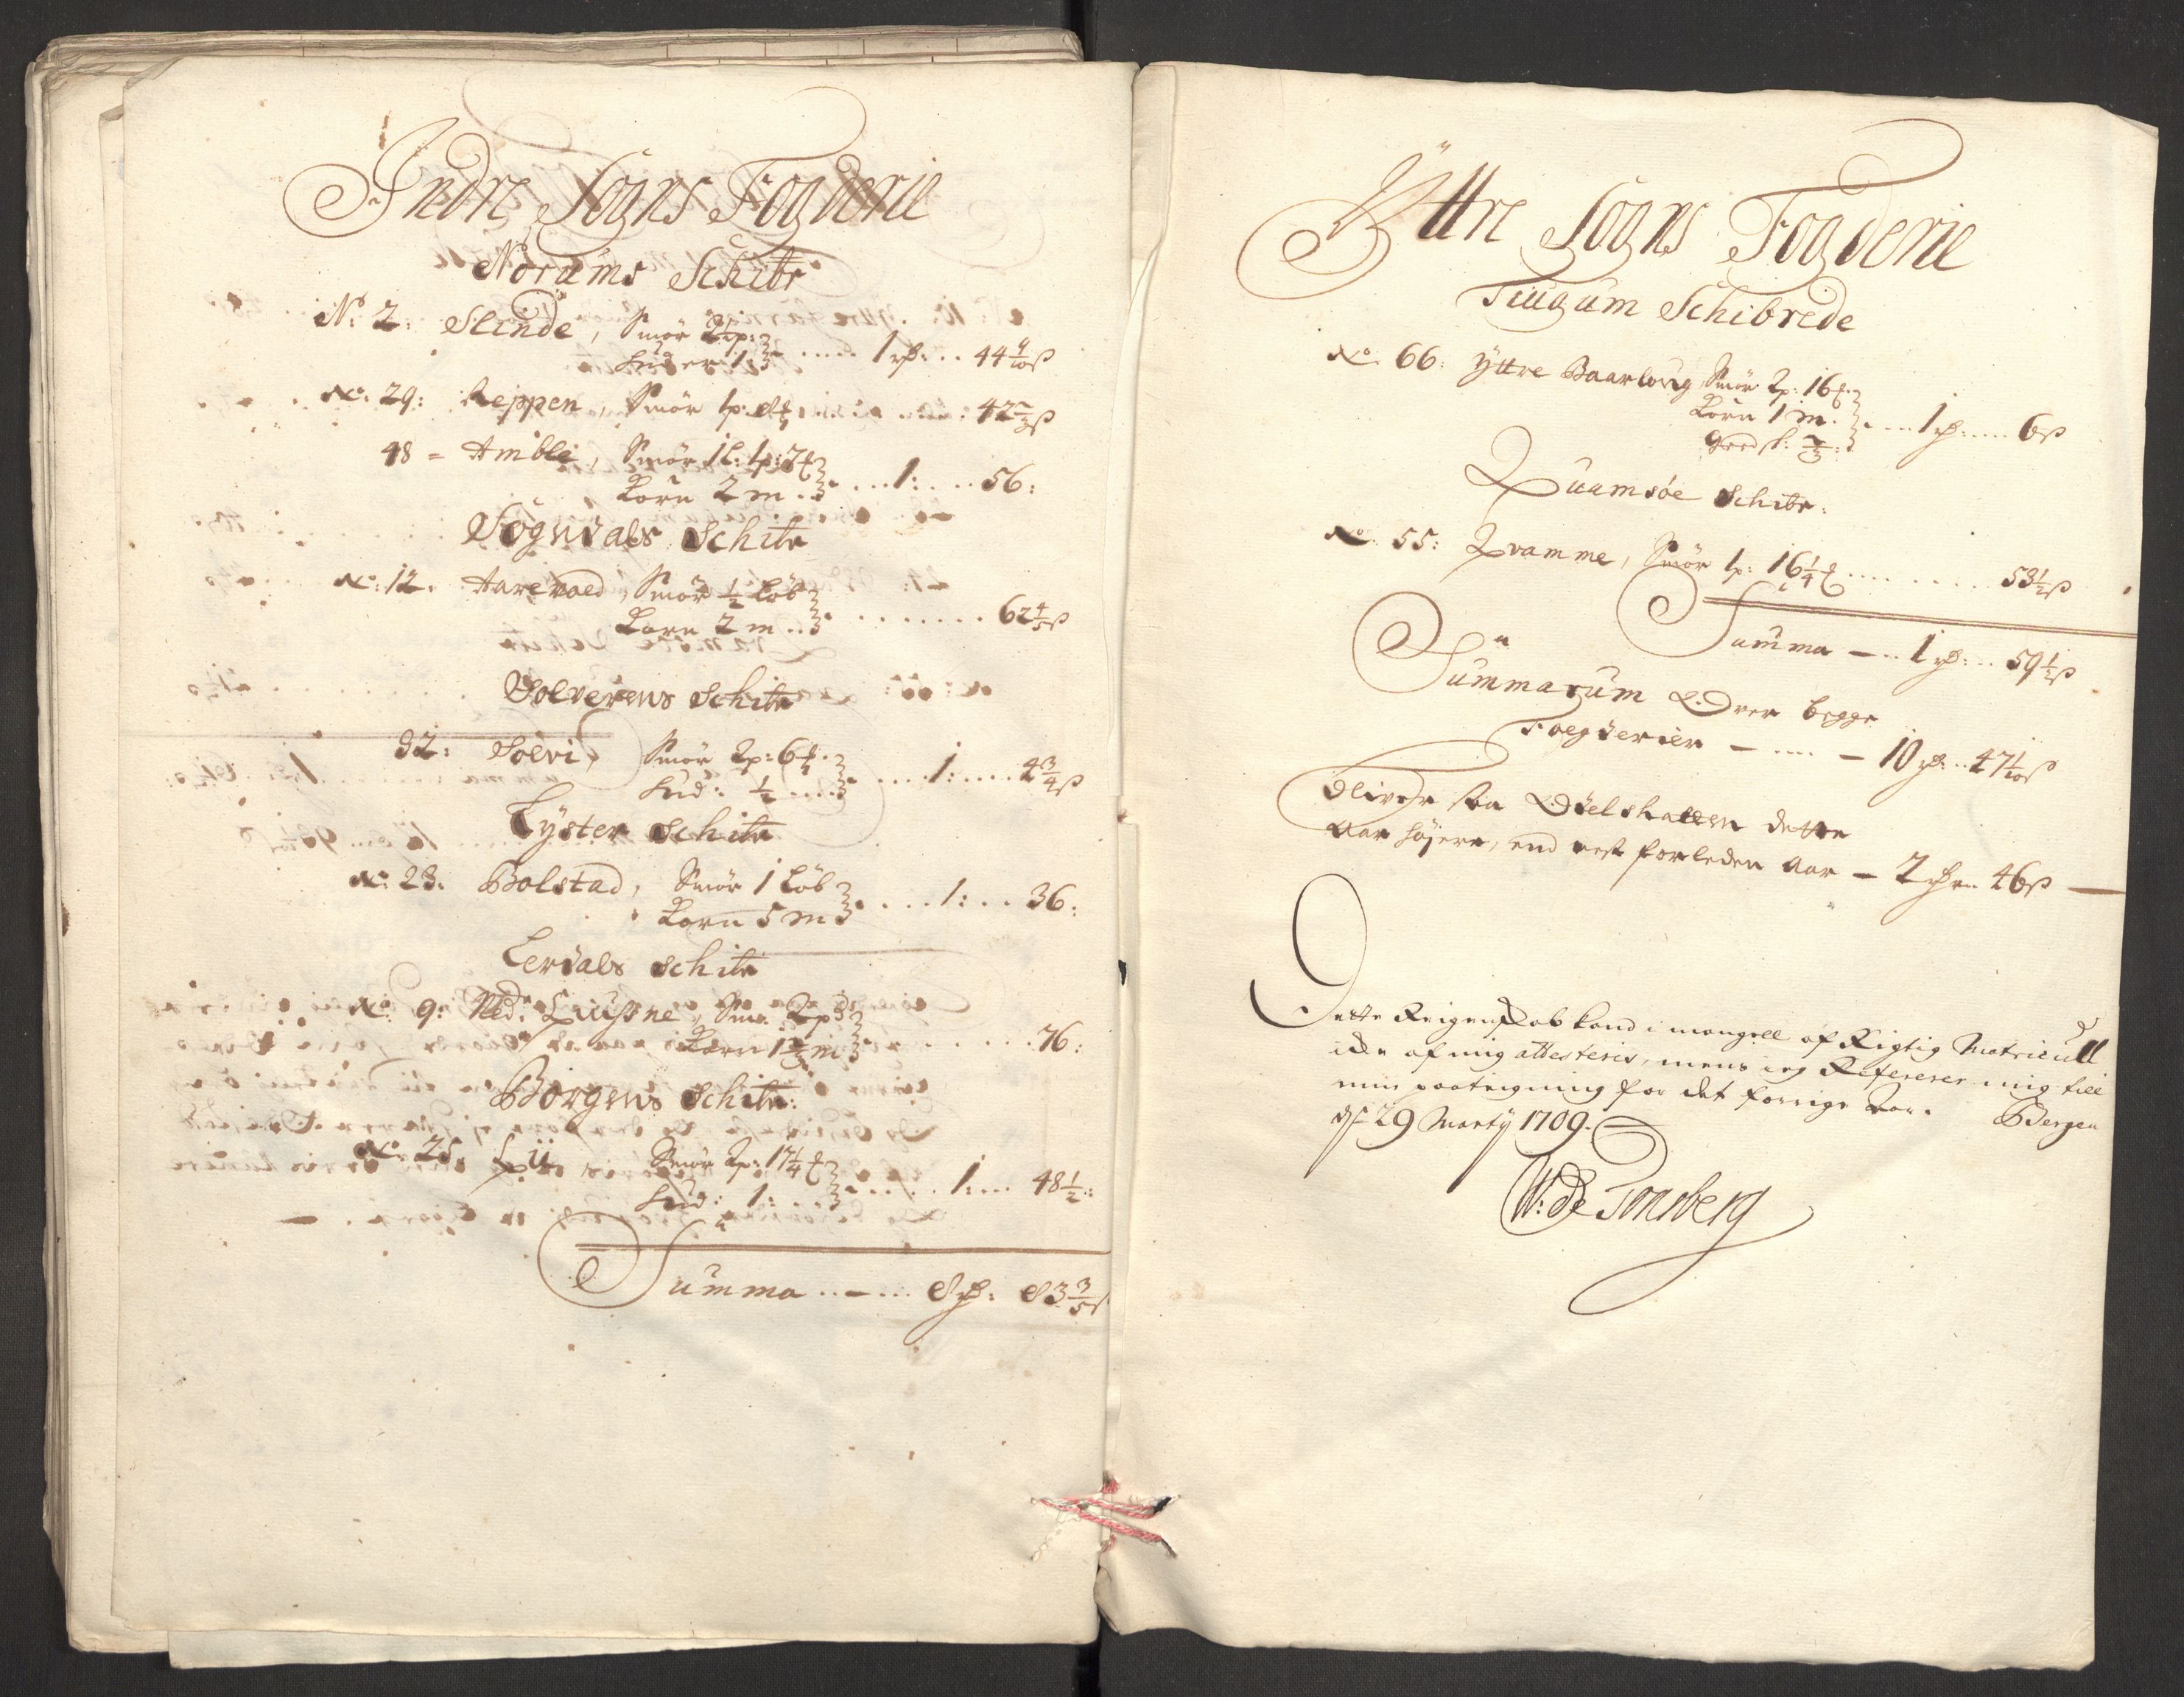 Indre Sogns Fogderie
Norums Schibr
No: 2: Slinde, Smör 2 p:
Huder 1: .... 1 rd: .. 44 4/10 ß
No: 29: Reppen, Smör 1 p: ..... 42 2/3 ß
48 = Amble, Smör 1 L: 1 p: 7
Korn 2 m .. ... 1: ... 56:
Sogndals Schibr
No: 12. Aarevoed, Smör 1/2 Löb
Korn 2 m .. ....... 62 4/5 ß
Solverens Schibr
32: Solvi, Smör 2 p: 6
Hud: 1/2 .... .... 1: .... 4 3/4 ß
Lyster Schibr
No: 23. Bolstad, Smör 1 Löb
Korn 5 m ... 1: .. 36:
Lerdals Schibr
No: 9: Ned: Qviisne, Smör 2 p
Korn 1 2/3 m ...... 76:
Borgens Schibr:
No: 25. Lii, Smör 2 p: 17 1/4
Hud: 1: ..... 1: ... 48 1/2:
Summa .. — ... 8 rd: 83 3/5 ß
Yttre Sogns Fogderie
Tiugum Schibrede
No. 66: Yttre Baarloug, Smör 2 p: 16
Korn 1 m.
Geedsk: 2/3: .... 1 rd: .... 6 ß
Quamsöe Schibr:
No. 55: Qvamme, Smör 1 p: 16 1/4 ......... 53 1/2 ß
Summa — .. 1 rd: .. 59 1/2 ß
Summarum Over begge
Fogderier — .... — 10 rd: .. 47 1/10 ß
Bliver saa Odelskatten dette
Aar höjere, end nest forleden Aar — 2 rd 46 ß —
Dette Reigenskab kand i mangell af Rigtig Matricull
icke af mig attesteris, mens ieg Refererer mig till
min paategning for det forrige Aar. Bergen
d 29 Marty 1709.
W: de Tonsberg